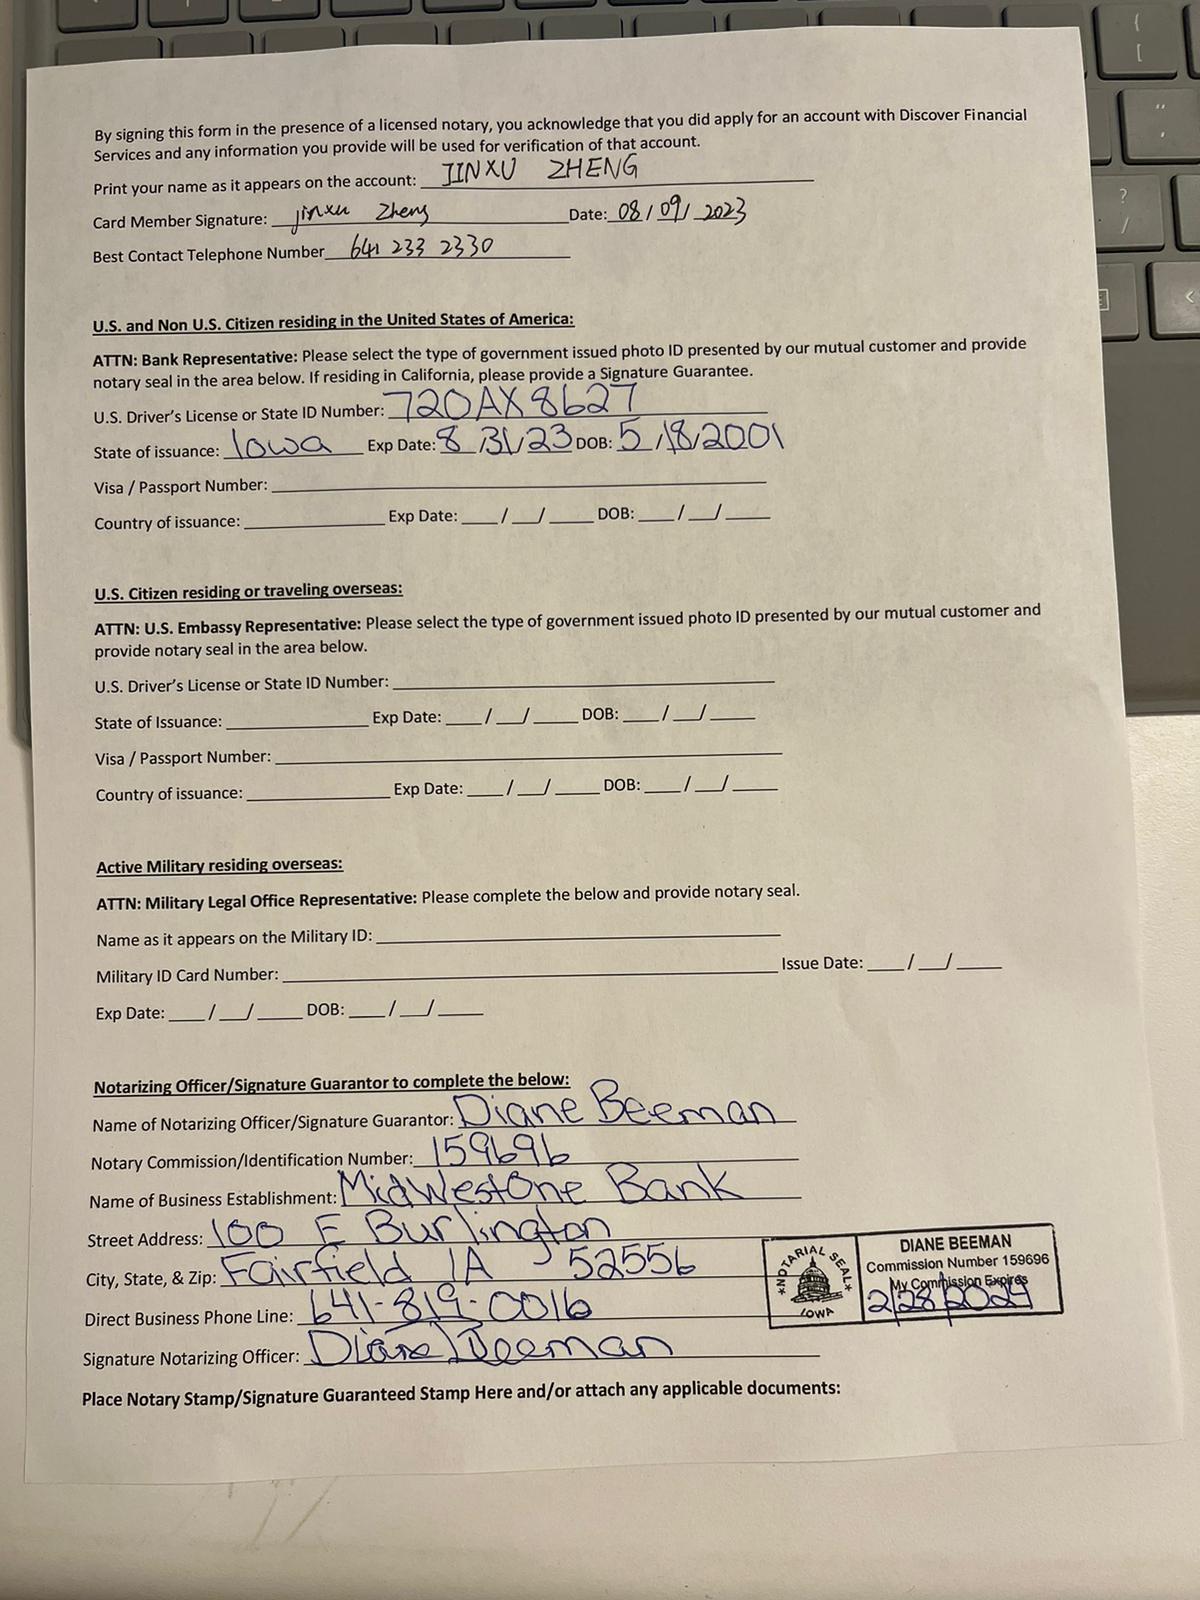 By signing this form in the presence of a licensed notary, you acknowledge that you did apply for an account with Discover Financial
Services and any information you provide will be used for verification of that account.
Print your name as it appears on the account: JINXU ZHENG
Card Member Signature: jinxu Zheng Date: 08/09/2023
Best Contact Telephone Number 641 233 2330
U.S. and Non U.S. Citizen residing in the United States of America:
ATTN: Bank Representative: Please select the type of government issued photo ID presented by our mutual customer and provide
notary seal in the area below. If residing in California, please provide a Signature Guarantee.
U.S. Driver's License or State ID Number: 720AX8627
State of issuance: Iowa Exp Date: 8/31/23 DOB: 5/18/2001
Visa / Passport Number: ___
Country of issuance: ___ Exp Date: ___/___/___ DOB: ___/___/___
U.S. Citizen residing or traveling overseas:
ATTN: U.S. Embassy Representative: Please select the type of government issued photo ID presented by our mutual customer and
provide notary seal in the area below.
U.S. Driver's License or State ID Number: ___
State of Issuance: ___ Exp Date: ___/___/___ DOB: ___/___/___
Visa / Passport Number: ___
Country of issuance: ___ Exp Date: ___/___/___ DOB: ___/___/___
Active Military residing overseas:
ATTN: Military Legal Office Representative: Please complete the below and provide notary seal.
Name as it appears on the Military ID: ___
Military ID Card Number: ___ Issue Date: ___/___/___
Exp Date: ___/___/___ DOB: ___/___/___
Notarizing Officer/Signature Guarantor to complete the below:
Name of Notarizing Officer/Signature Guarantor: Diane Beeman
Notary Commission/Identification Number: 159696
Name of Business Establishment: MidWestOne Bank
Street Address: 100 E Burlington
City, State, & Zip: Fairfield IA 52556
Direct Business Phone Line: 641-819-0016
Signature Notarizing Officer: Diane Beeman
*NOTARIAL SEAL*
IOWA
DIANE BEEMAN
Commission Number 159696
My Commission Expires
2/28/2024
Place Notary Stamp/Signature Guaranteed Stamp Here and/or attach any applicable documents: